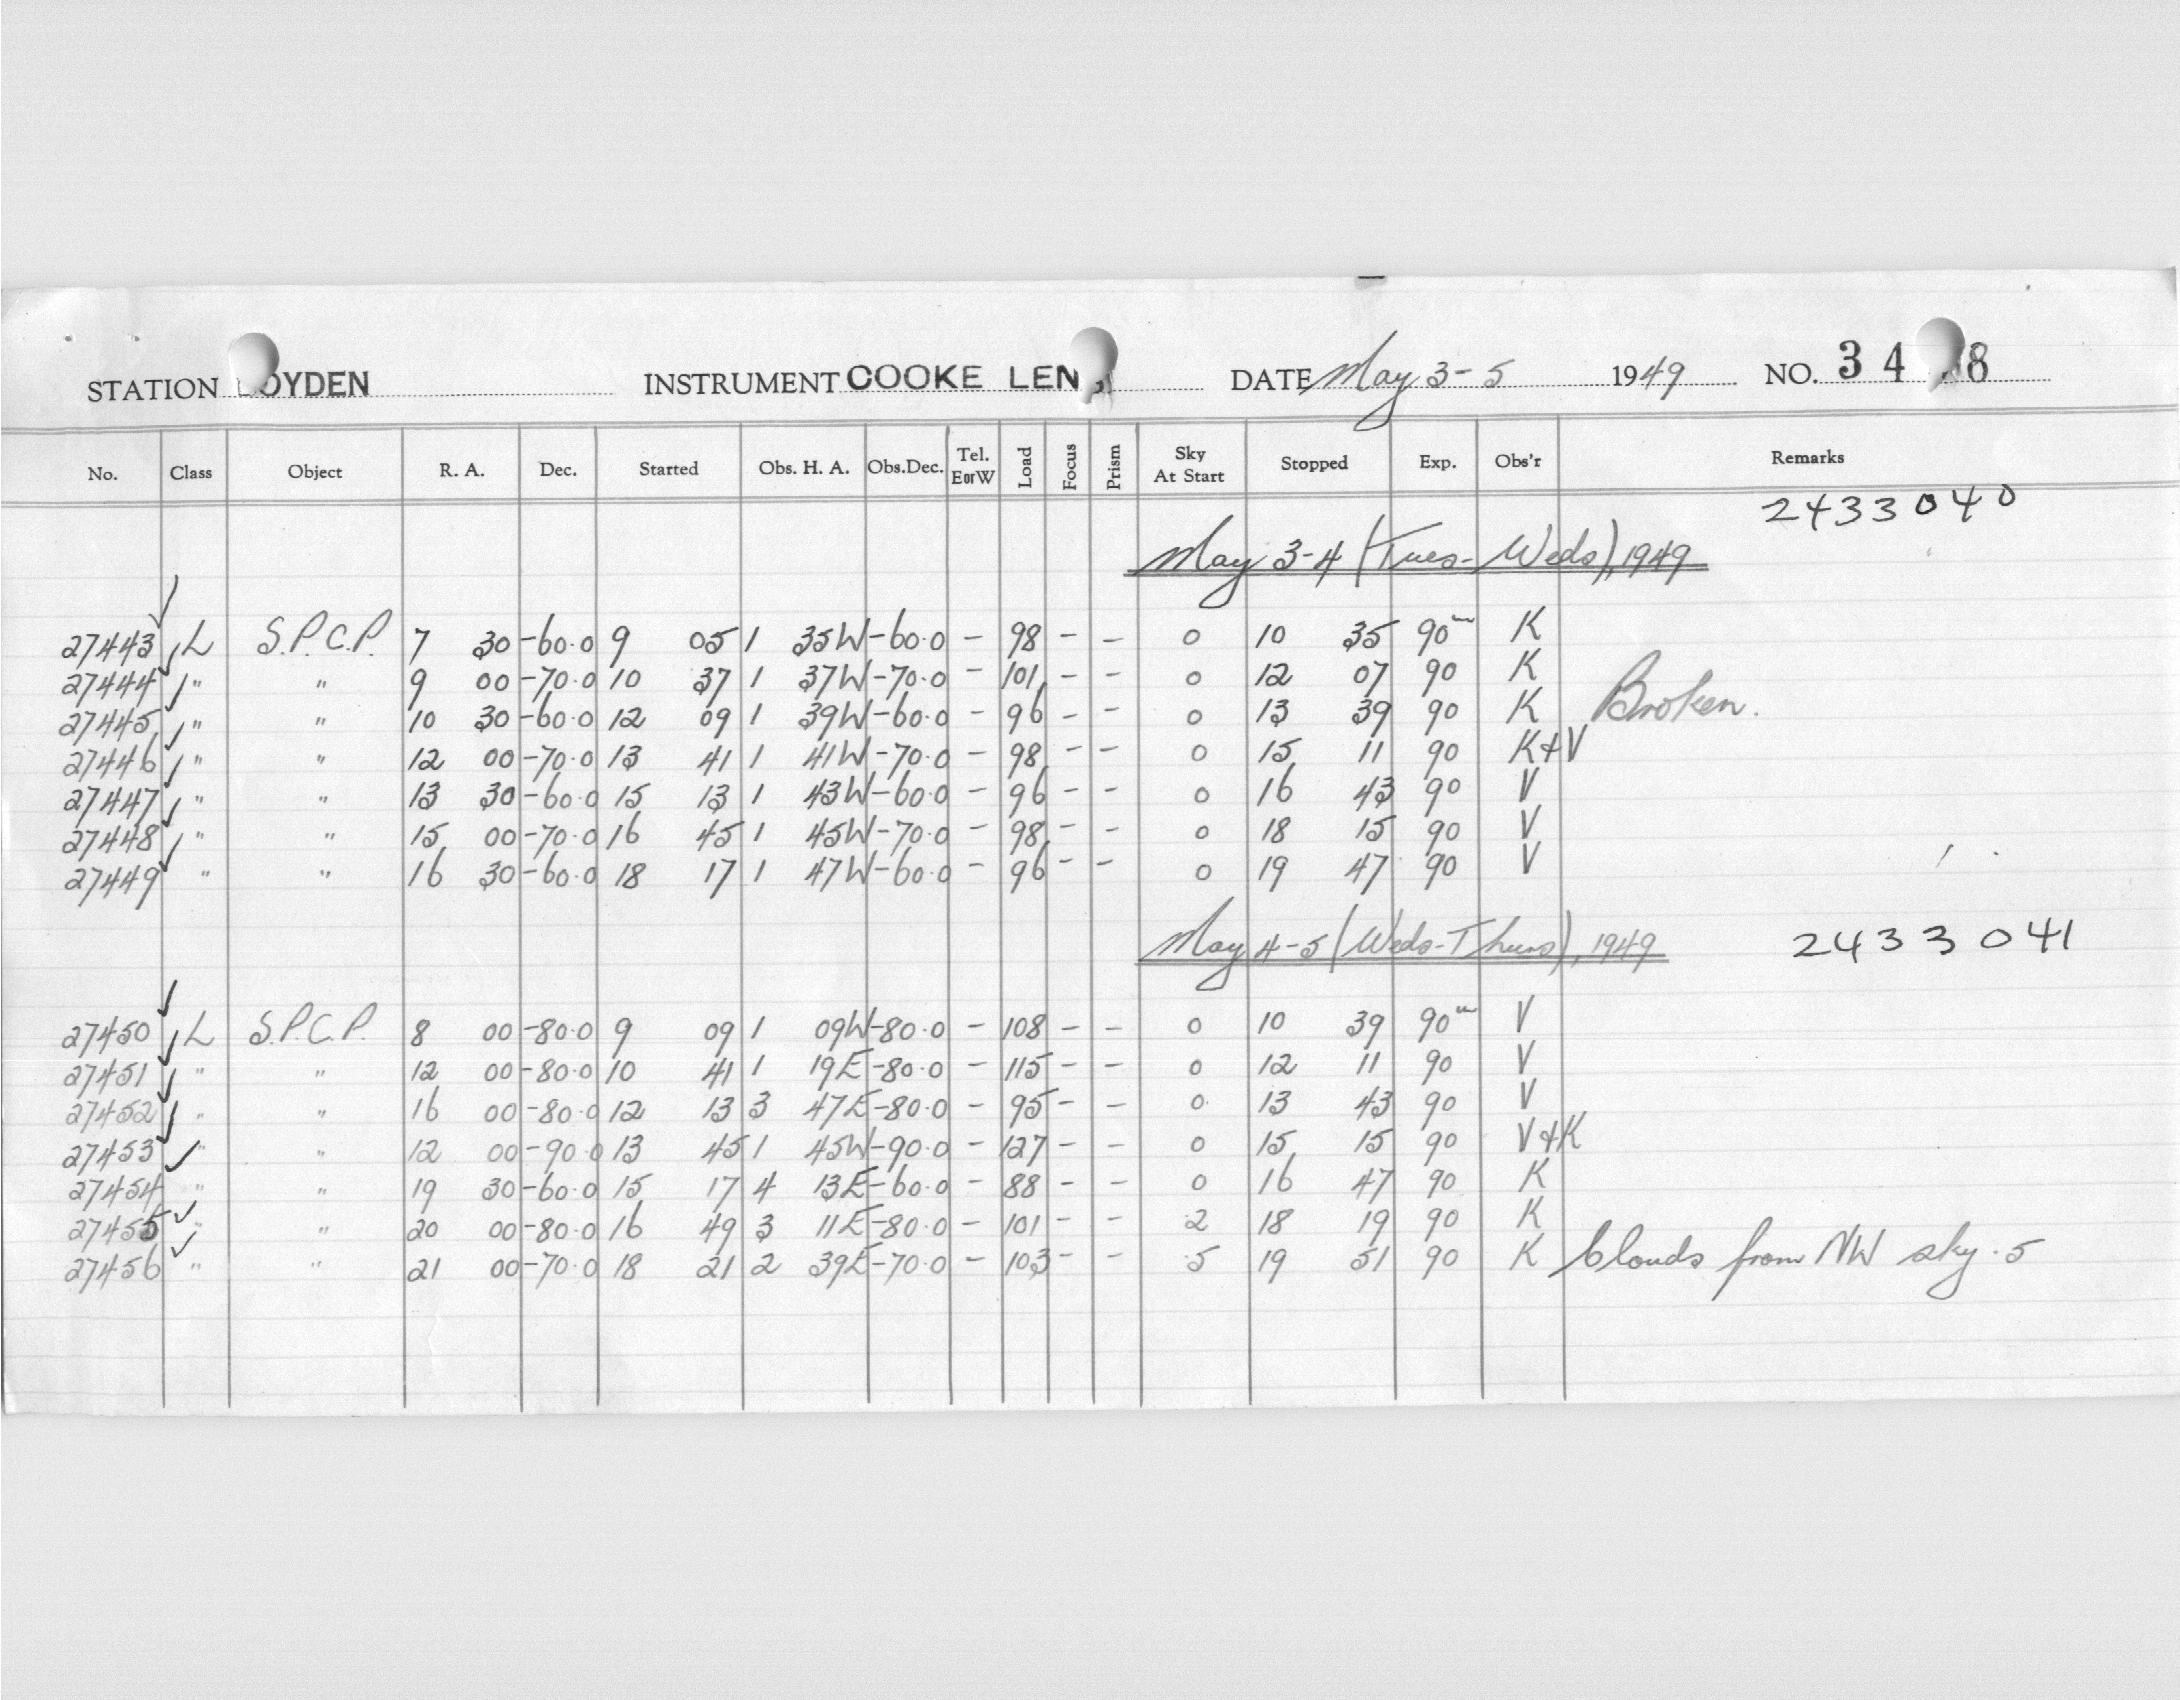 STATION BOYDEN INSTRUMENT COOKE LENS DATE May 3-5 1949 NO. 34 8
No. Class Object R. A. Dec. Started Obs. H. A. Obs.Dec. Tel. EorW Load Focus Prism Sky At Start Stopped Exp. Obs'r Remarks
2433040
May 3-4 (Tues-Weds), 1949
27443 L S.P.C.P. 7 30 -60.0 9 05 1 35W -60.0 - 98 - - 0 10 35 90m K
27444 " " 9 00 -70.0 10 37 1 37W -70.0 - 101 - - 0 12 07 90 K
27445 " " 10 30 -60.0 12 09 1 39W -60.0 - 96 - - 0 13 39 90 K Broken.
27446 " " 12 00 -70.0 13 41 1 41W -70.0 - 98 - - 0 15 11 90 K+V
27447 " " 13 30 -60.0 15 13 1 43W -60.0 - 96 - - 0 16 43 90 V
27448 " " 15 00 -70.0 16 45 1 45W -70.0 - 98 - - 0 18 15 90 V
27449 " " 16 30 -60.0 18 17 1 47W -60.0 - 96 - - 0 19 47 90 V
May 4-5 (Weds-Thurs), 1949 2433041
27450 L S.P.C.P. 8 00 -80.0 9 09 1 09W -80.0 - 108 - - 0 10 39 90m V
27451 " " 12 00 -80.0 10 41 1 19E -80.0 - 115 - - 0 12 11 90 V
27452 " " 16 00 -80.0 12 13 3 47E -80.0 - 95 - - 0 13 43 90 V
27453 " " 12 00 -90.0 13 45 1 45W -90.0 - 127 - - 0 15 15 90 V+K
27454 " " 19 30 -60.0 15 17 4 13E -60.0 - 88 - - 0 16 47 90 K
27455 " " 20 00 -80.0 16 49 3 11E -80.0 - 101 - - 2 18 19 90 K
27456 " " 21 00 -70.0 18 21 2 39E -70.0 - 103 - - 5 19 51 90 K Clouds from NW sky.5